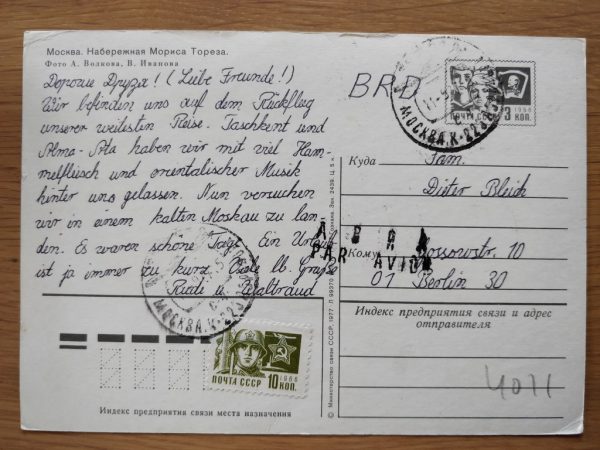 Москва. Набережная Мориса Тореза.
Фото А. Волкова, В. Иванова
Дорогие Друзя! (Liebe Freunde!)
Wir befinden uns auf dem Rückflug
unserer weitesten Reise. Taschkent und
Alma-Ata haben wir mit viel Ham-
melfleisch und orientalischer Musik
hinter uns gelassen. Nun versuchen
wir in einem kalten Moskau zu lan-
den. Es waren schöne Tage. Ein Urlaub
ist ja immer zu kurz. Euch lb. Grüße
Rudi u. Waltraud
BRD
1966
3 КОП.
МОСКВА.К-223
Куда
Fam.
Dieter Bleich
АВИА
PAR AVION
Кому
Bossowstr. 10
01 Berlin 30
Индекс предприятия связи и адрес
отправителя
4071
МОСКВА.К-223
ПОЧТА СССР 1966
10 КОП.
Индекс предприятия связи места назначения
© Министерство связи СССР, 1977.